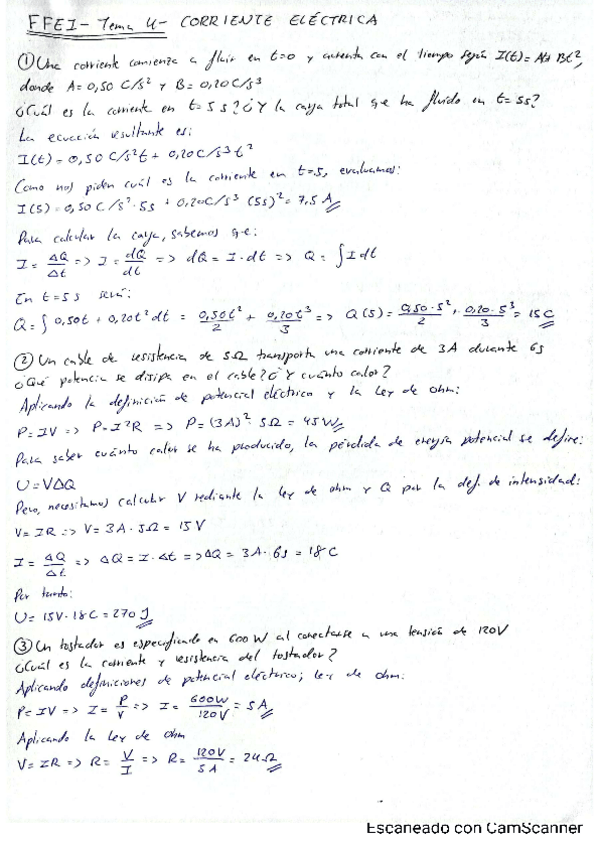 FFEI - Tema 4 - CORRIENTE ELÉCTRICA
① Una corriente comienza a fluir en t=0 y aumenta con el tiempo según I(t) = At + Bt²,
donde A = 0,50 C/s² y B = 0,20 C/s³
¿Cuál es la corriente en t = 5 s? ¿Y la carga total q.e ha fluido en t = 5s?
La ecuación resultante es:
I(t) = 0,50 C/s² t + 0,20 C/s³ t²
Como nos piden cuál es la corriente en t=5, evaluamos:
I(5) = 0,50 C/s² · 5s + 0,20 C/s³ (5s)² = 7,5 A
Para calcular la carga, sabemos q.e:
I = ΔQ/Δt => I = dQ/dt => dQ = I · dt => Q = ∫ I dt
En t = 5 s será:
Q = ∫ 0,50t + 0,20t² dt = 0,50t²/2 + 0,20t³/3 => Q(5) = 0,50·5²/2 + 0,20·5³/3 = 15 C
② Un cable de resistencia de 5Ω transporta una corriente de 3A durante 6s
¿Qué potencia se disipa en el cable? ¿Y cuánto calor?
Aplicando la definición de potencial eléctrico y la Ley de ohm:
P = IV => P = I²R => P = (3A)² · 5Ω = 45 W
Para saber cuánto calor se ha producido, la pérdida de energía potencial se define:
U = VΔQ
Pero, necesitamos calcular V mediante la ley de ohm y Q por la def. de intensidad:
V = IR => V = 3A · 5Ω = 15 V
I = ΔQ/Δt => ΔQ = I · Δt => ΔQ = 3A · 6s = 18 C
Por tanto:
U = 15V · 18C = 270 J
③ Un tostador es especificado en 600 W al conectarse a una tensión de 120V
¿Cuál es la corriente y resistencia del tostador?
Aplicando definiciones de potencial eléctrico; ley de ohm:
P = IV => I = P/V => I = 600W/120V = 5 A
Aplicando la Ley de ohm
V = IR => R = V/I => R = 120V/5A = 24 Ω
Escaneado con CamScanner